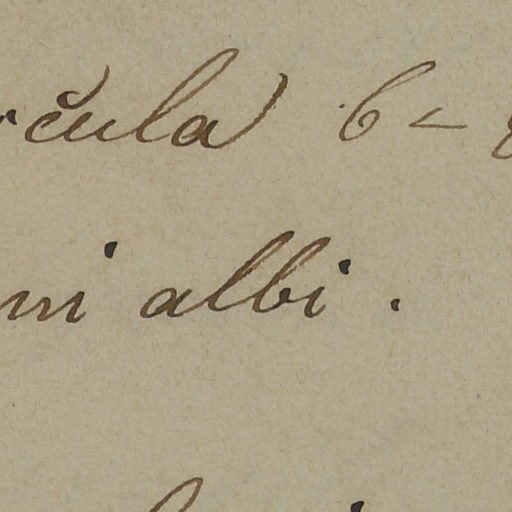 čula) 6 –
ni albi.